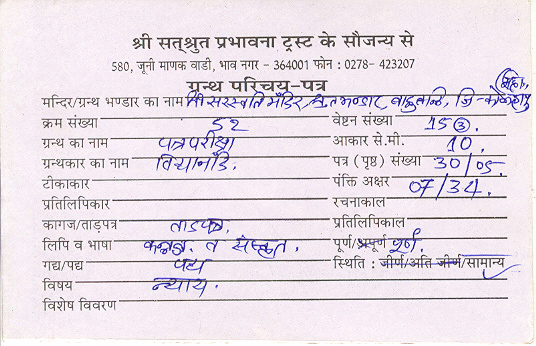 श्री सत्श्रुत प्रभावना ट्रस्ट के सौजन्य से
580, जूनी माणक वाडी, भाव नगर - 364001 फोन : 0278- 423207
ग्रन्थ परिचय-पत्र
मन्दिर/ग्रन्थ भण्डार का नाम
क्रम संख्या 52 वेष्टन संख्या 15③.
ग्रन्थ का नाम पत्रपरीक्षा आकार से.मी. 10.
ग्रन्थकार का नाम पत्र (पृष्ठ) संख्या 30/05.
टीकाकार पंक्ति अक्षर 07/34.
प्रतिलिपिकार रचनाकाल
कागज/ताड़पत्र ताडपत्र. प्रतिलिपिकाल
लिपि व भाषा कन्नड. संस्कृत. पूर्ण/अपूर्ण पूर्ण.
गद्य/पद्य पद्य स्थिति : जीर्ण/अति जीर्ण/सामान्य
विषय न्याय.
विशेष विवरण